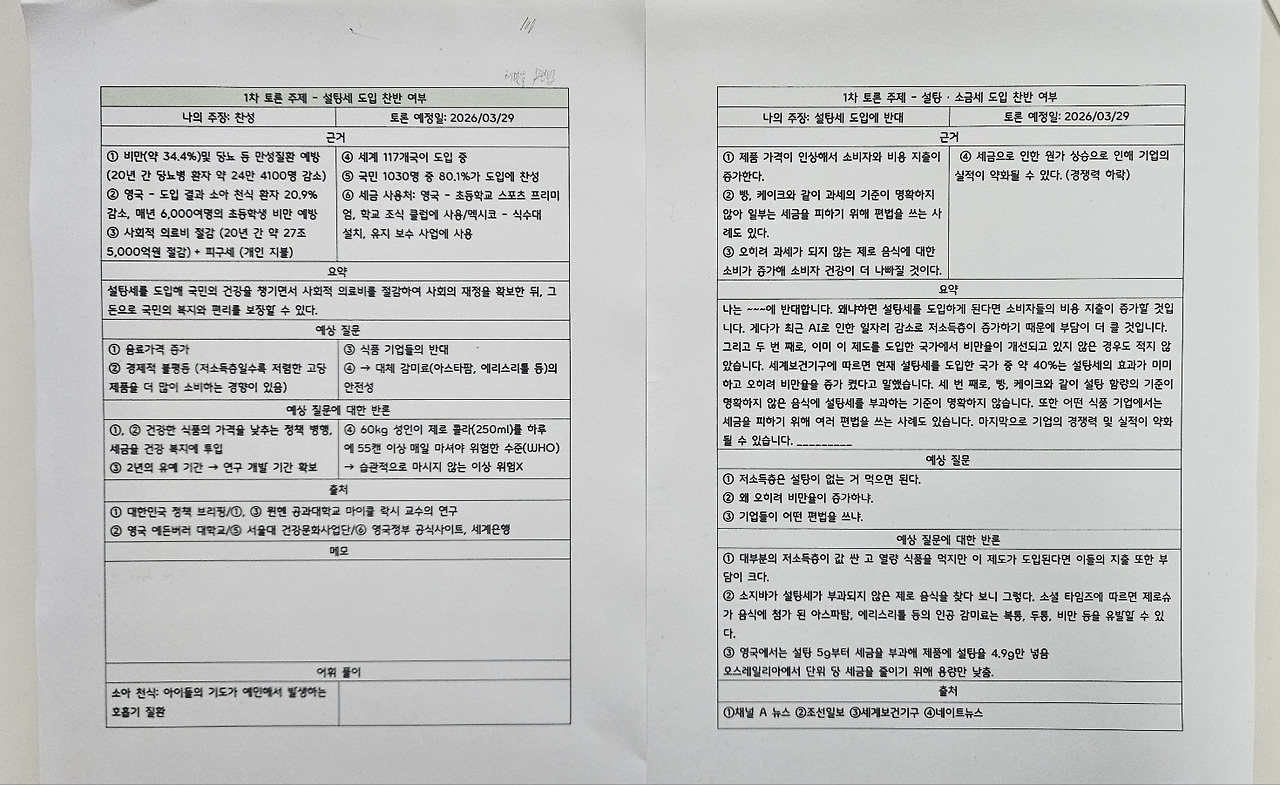 1차 토론 주제 - 설탕세 도입 찬반 여부
나의 주장: 찬성
토론 예정일: 2026/03/29
근거
① 비만(약 34.4%)및 당뇨 등 만성질환 예방
(20년 간 당뇨병 환자 약 24만 4100명 감소)
② 영국 - 도입 결과 소아 천식 환자 20.9%
감소, 매년 6,000여명의 초등학생 비만 예방
③ 사회적 의료비 절감 (20년 간 약 27조
5,000억원 절감) + 피구세 (개인 지불)
④ 세계 117개국이 도입 중
⑤ 국민 1030명 중 80.1%가 도입에 찬성
⑥ 세금 사용처: 영국 - 초등학교 스포츠 프리미
엄, 학교 조식 클럽에 사용/멕시코 - 식수대
설치, 유지 보수 사업에 사용
요약
설탕세를 도입해 국민의 건강을 챙기면서 사회적 의료비를 절감하여 사회의 재정을 확보한 뒤, 그
돈으로 국민의 복지와 편리를 보장할 수 있다.
예상 질문
① 음료가격 증가
② 경제적 불평등 (저소득층일수록 저렴한 고당
제품을 더 많이 소비하는 경향이 있음)
③ 식품 기업들의 반대
④ → 대체 감미료(아스타팜, 에리스리톨 등)의
안전성
예상 질문에 대한 반론
①, ② 건강한 식품의 가격을 낮추는 정책 병행,
세금을 건강 복지에 투입
③ 2년의 유예 기간 → 연구 개발 기간 확보
④ 60kg 성인이 제로 콜라(250ml)를 하루
에 55캔 이상 매일 마셔야 위험한 수준(WHO)
→ 습관적으로 마시지 않는 이상 위험X
출처
① 대한민국 정책 브리핑/①, ③ 뮌헨 공과대학교 마이클 락시 교수의 연구
② 영국 에든버러 대학교/⑤ 서울대 건강문화사업단/⑥ 영국정부 공식사이트, 세계은행
메모
어휘 풀이
소아 천식: 아이들의 기도가 예민해서 발생하는
호흡기 질환
1차 토론 주제 - 설탕 · 소금세 도입 찬반 여부
나의 주장: 설탕세 도입에 반대
토론 예정일: 2026/03/29
근거
① 제품 가격이 인상해서 소비자와 비용 지출이
증가한다.
② 빵, 케이크와 같이 과세의 기준이 명확하지
않아 일부는 세금을 피하기 위해 편법을 쓰는 사
례도 있다.
③ 오히려 과세가 되지 않는 제로 음식에 대한
소비가 증가해 소비자 건강이 더 나빠질 것이다.
④ 세금으로 인한 원가 상승으로 인해 기업의
실적이 약화될 수 있다. (경쟁력 하락)
요약
나는 ~~~에 반대합니다. 왜냐하면 설탕세를 도입하게 된다면 소비자들의 비용 지출이 증가할 것입
니다. 게다가 최근 AI로 인한 일자리 감소로 저소득층이 증가하기 때문에 부담이 더 클 것입니다.
그리고 두 번 째로, 이미 이 제도를 도입한 국가에서 비만율이 개선되고 있지 않은 경우도 적지 않
았습니다. 세계보건기구에 따르면 현재 설탕세를 도입한 국가 중 약 40%는 설탕세의 효과가 미미
하고 오히려 비만율을 증가 켰다고 말했습니다. 세 번 째로, 빵, 케이크와 같이 설탕 함량의 기준이
명확하지 않은 음식에 설탕세를 부과하는 기준이 명확하지 않습니다. 또한 어떤 식품 기업에서는
세금을 피하기 위해 여러 편법을 쓰는 사례도 있습니다. 마지막으로 기업의 경쟁력 및 실적이 약화
될 수 있습니다. _________
예상 질문
① 저소득층은 설탕이 없는 거 먹으면 된다.
② 왜 오히려 비만율이 증가하냐.
③ 기업들이 어떤 편법을 쓰냐.
예상 질문에 대한 반론
① 대부분의 저소득층이 값 싼 고 열량 식품을 먹지만 이 제도가 도입된다면 이들의 지출 또한 부
담이 크다.
② 소지바가 설탕세가 부과되지 않은 제로 음식을 찾다 보니 그렇다. 소셜 타임즈에 따르면 제로슈
가 음식에 첨가 된 아스파탐, 에리스리톨 등의 인공 감미료는 복통, 두통, 비만 등을 유발할 수 있
다.
③ 영국에서는 설탕 5g부터 세금을 부과해 제품에 설탕을 4.9g만 넣음
오스레일리아에서 단위 당 세금을 줄이기 위해 용량만 낮춤.
출처
①채널 A 뉴스 ②조선일보 ③세계보건기구 ④네이트뉴스